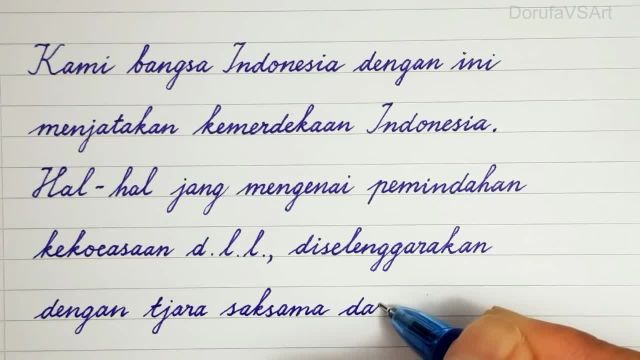 DorufaVSArt
Kami bangsa Indonesia dengan ini
menjatakan kemerdekaan Indonesia.
Hal-hal jang mengenai pemindahan
kekoeasaan d.l.l., diselenggarakan
dengan tjara saksama da